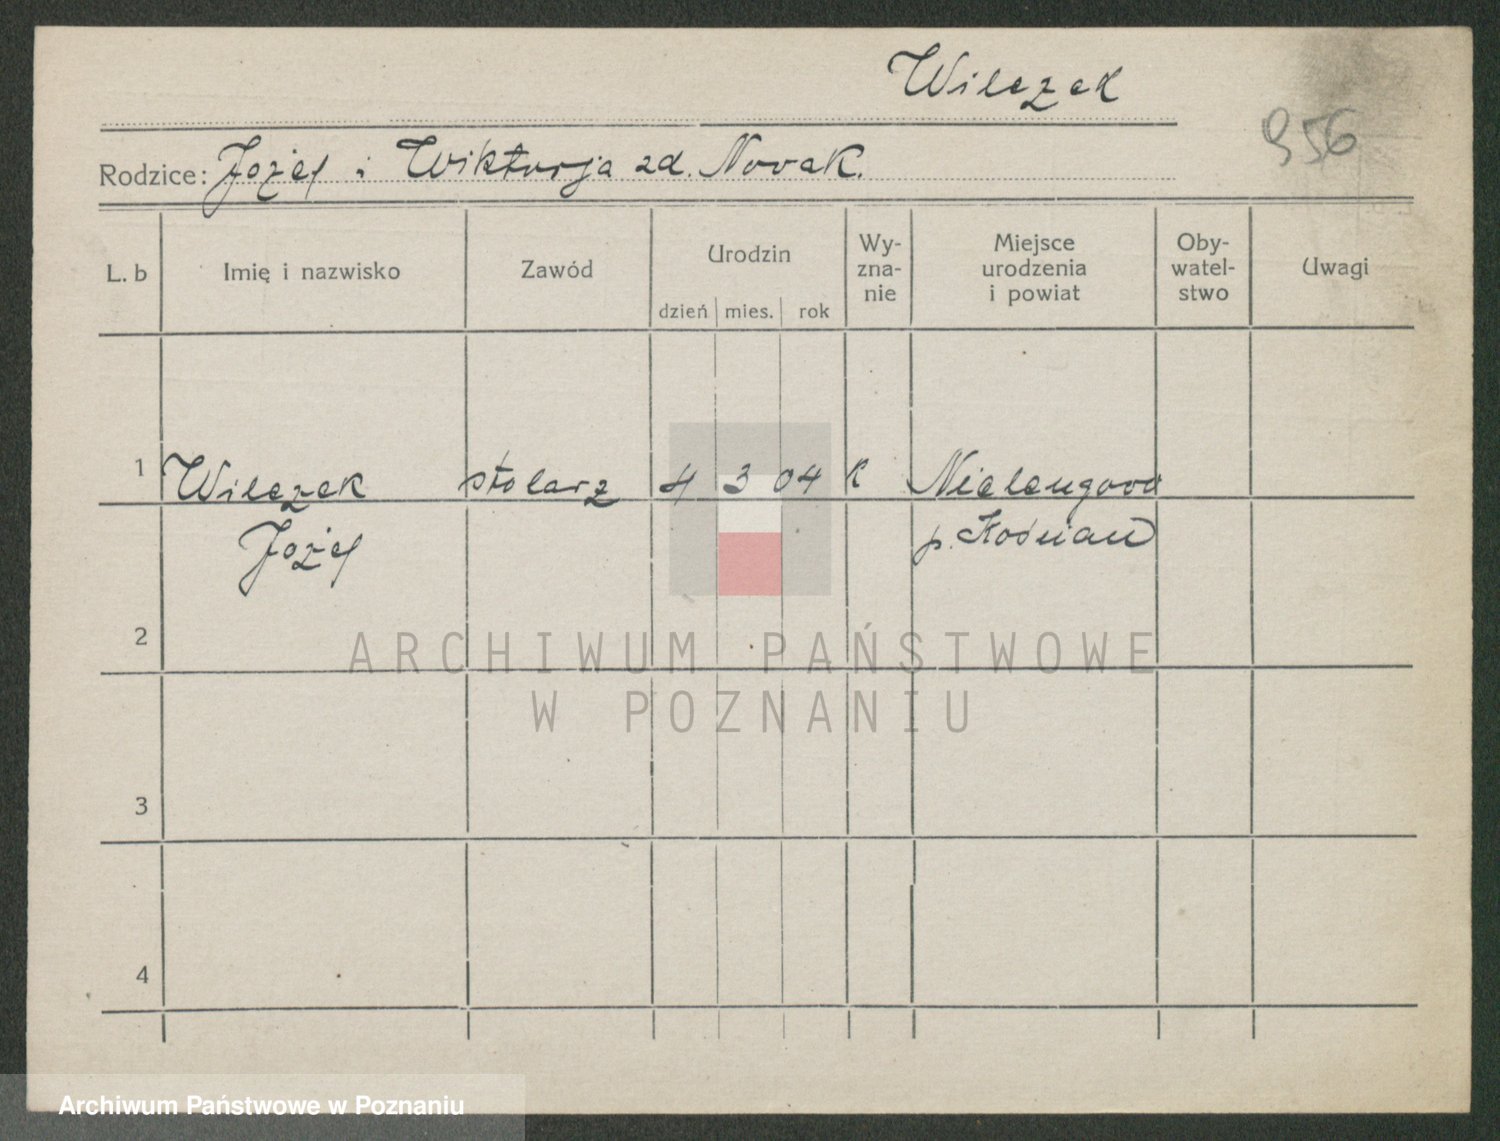 Wilczek
956
Rodzice: Józef i Wiktorja zd. Novak.
L. b Imię i nazwisko Zawód Urodzin dzień mies. rok Wy- zna- nie Miejsce urodzenia i powiat Oby- watel- stwo Uwagi
1 Wilczek stolarz 4 3 04 k
Józef p. Kościan
2
ARCHIWUM PAŃSTWOWE
W POZNANIU
3
4
Archiwum Państwowe w Poznaniu